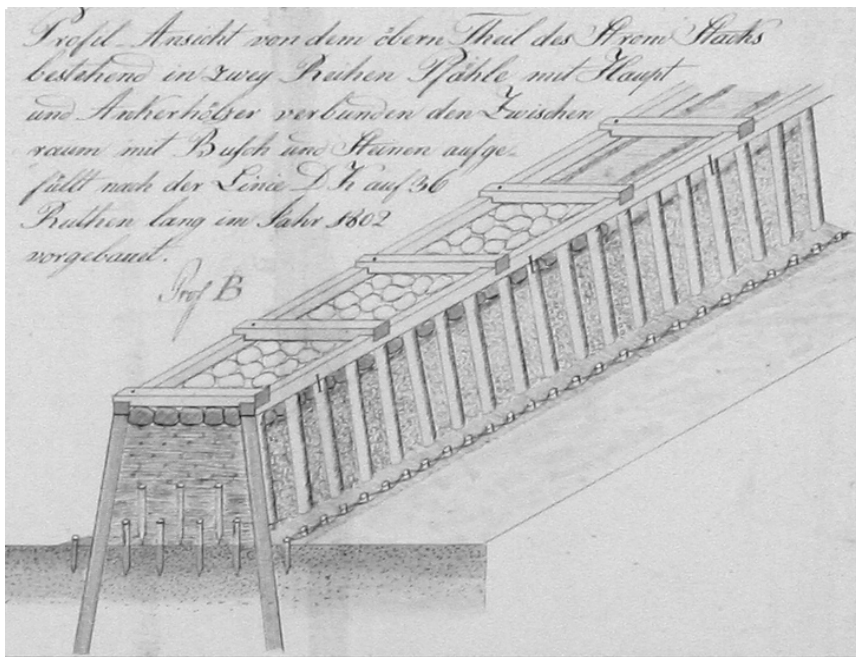 Profil-Ansicht von dem obern Theil des Strom Stacks
bestehend in zwey Reihen Pfähle mit Haupt
und Ankerhölzer verbunden den Zwischen
raum mit Busch und Steinen aufge-
füllt nach der Linie D K auf 36
Ruthen lang im Jahr 1802
vorgebauet.
Prof B